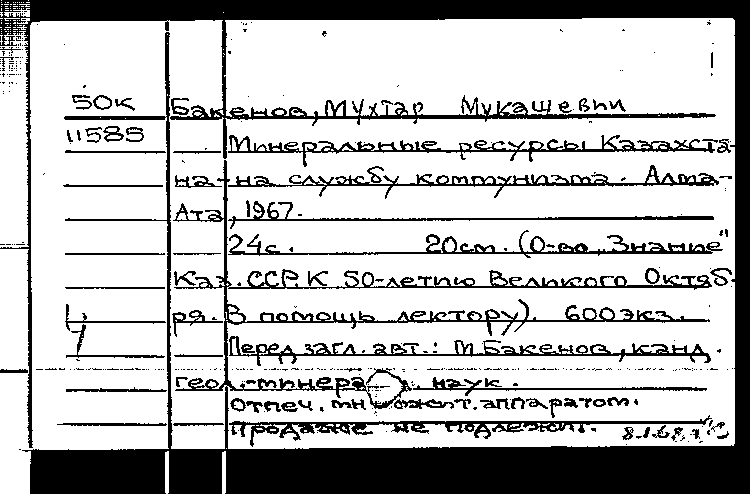 50К Бакенов, Мухтар Мукашевич
11585 Минеральные ресурсы Казахста-
на-на службу коммунизма. Алма-
Ата, 1967.
24с. 20см. (О-во „Знание"
Каз.ССР. К 50-летию Великого Октяб-
ря. В помощь лектору). 600экз.
Перед загл. авт.: М.Бакенов, канд.
геол.-минера л. наук.
Отпеч. множит. аппаратом.
Продаже не подлежит. 8.1.68